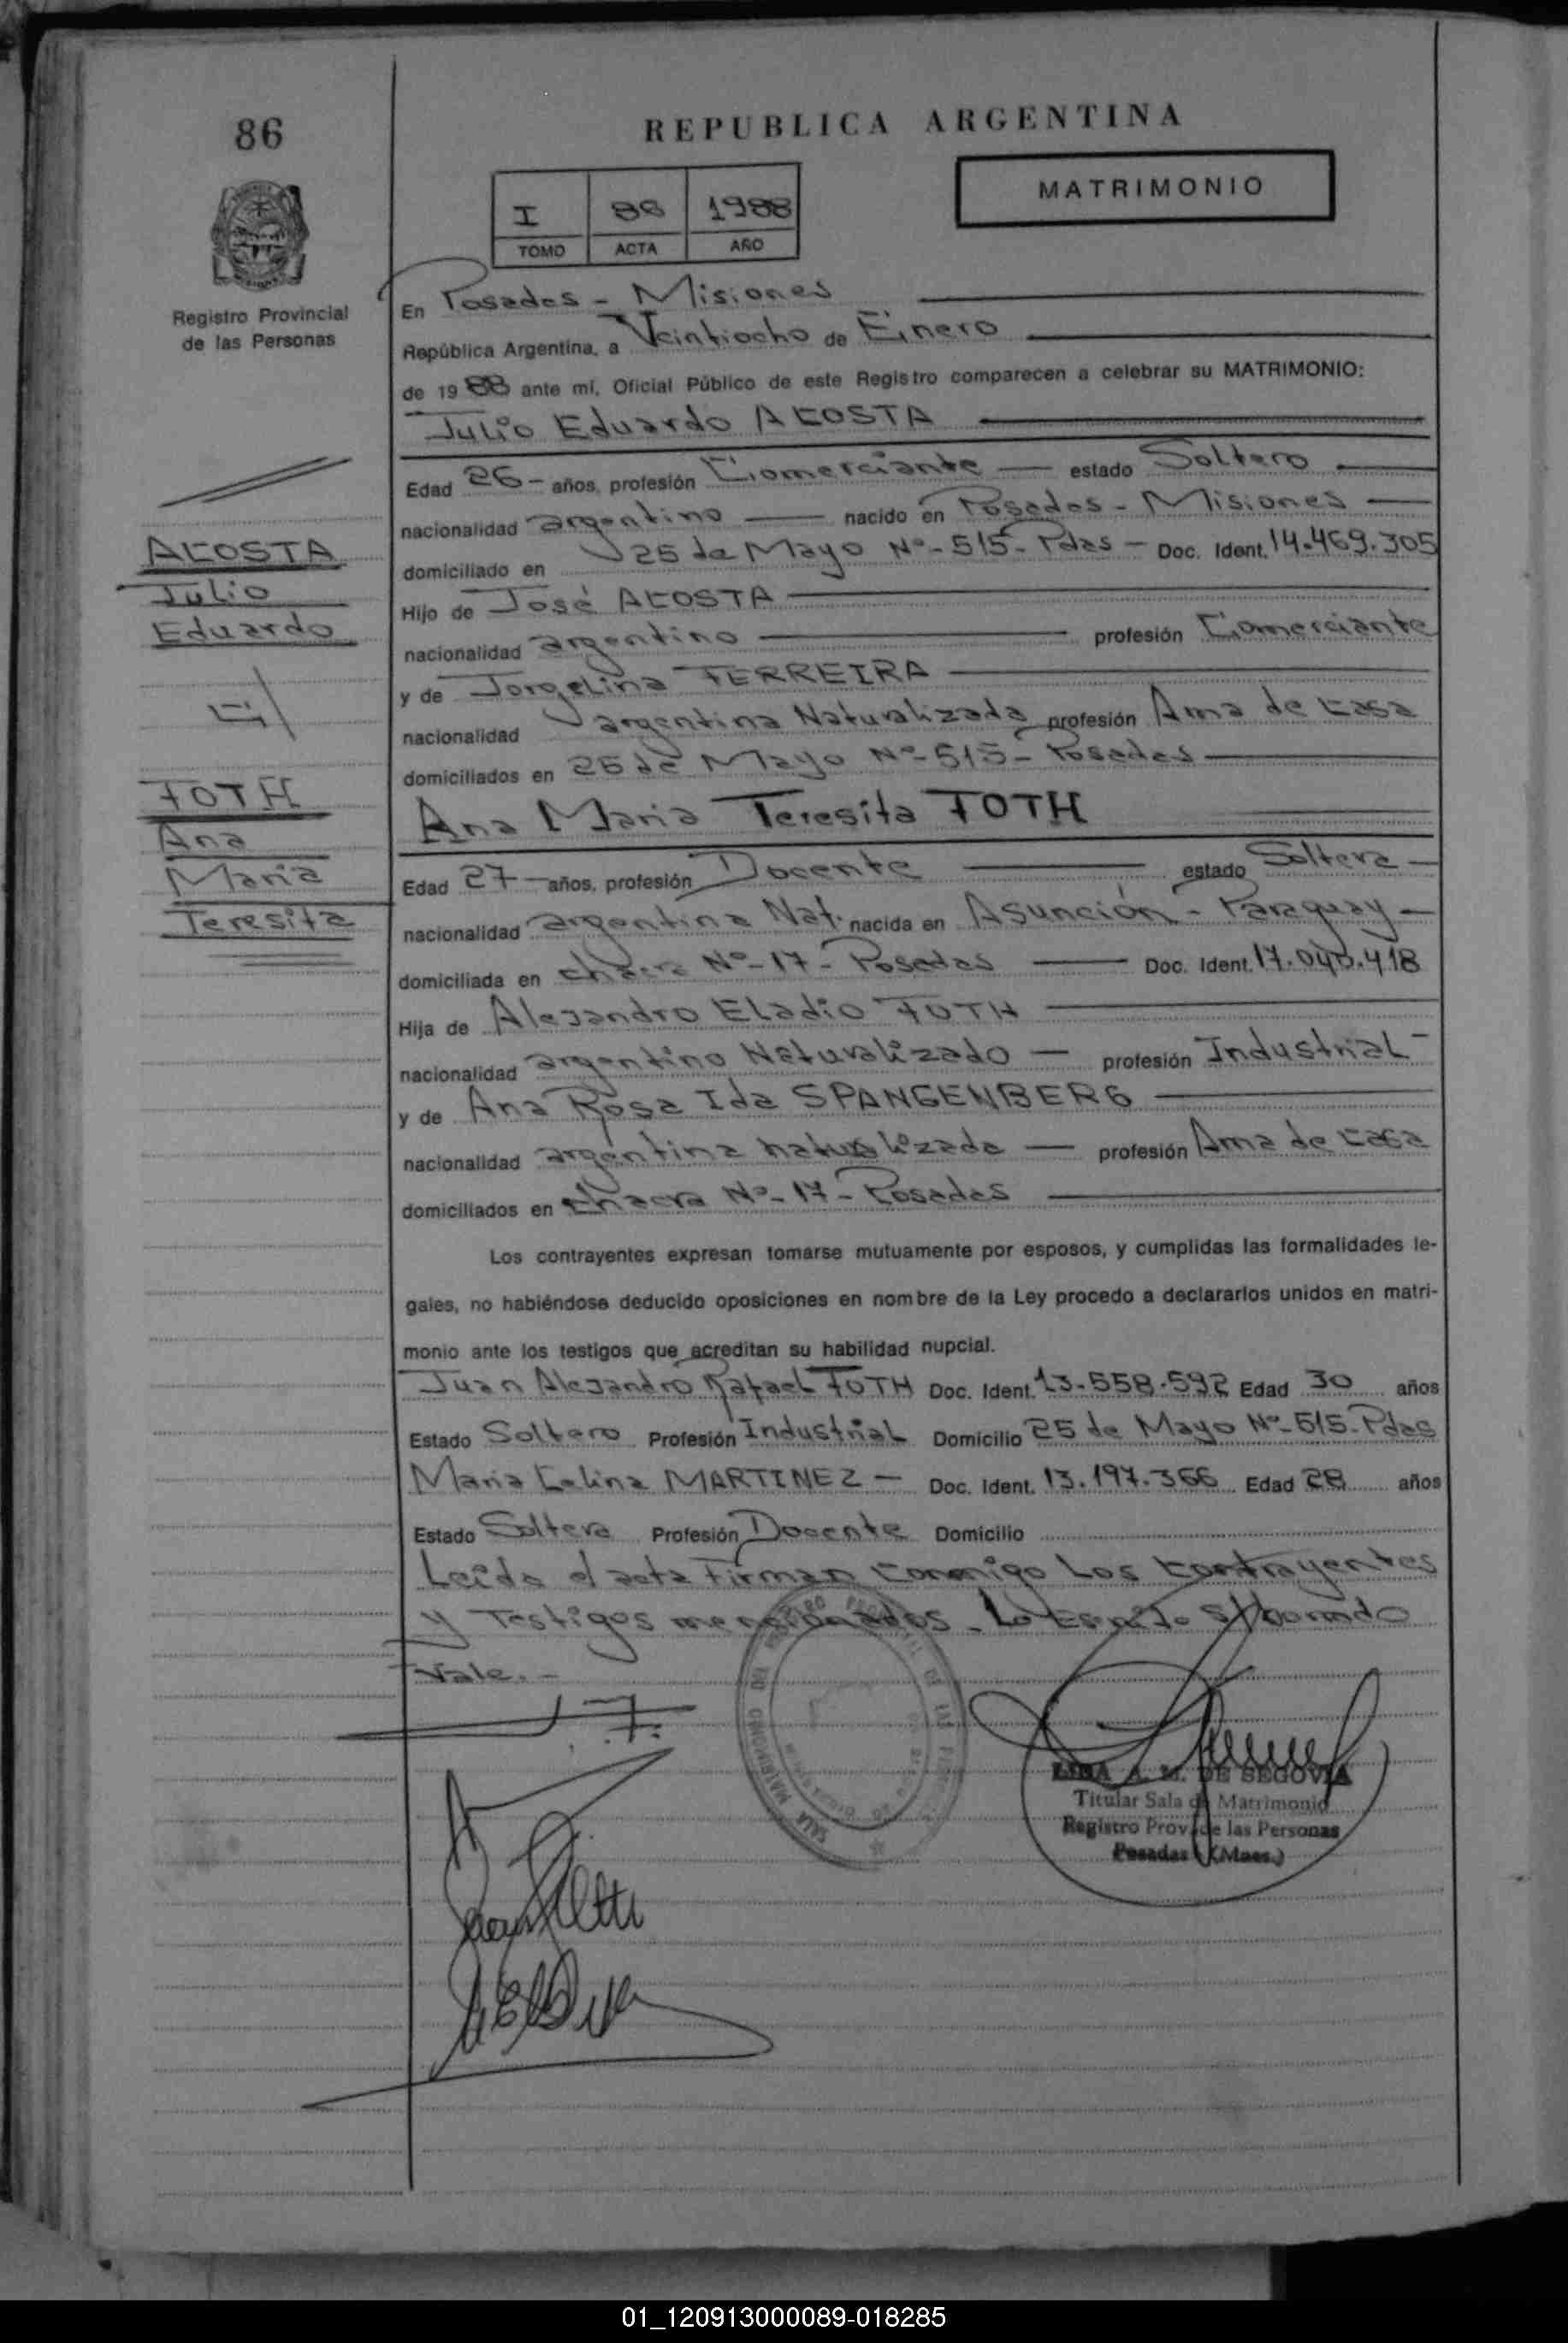 86
REPUBLICA ARGENTINA
MATRIMONIO
I 86 1988
TOMO ACTA AÑO
Registro Provincial
de las Personas
En Posadas - Misiones
República Argentina, a Veintiocho de Enero
de 1988 ante mí, Oficial Público de este Registro comparecen a celebrar su MATRIMONIO:
Julio Eduardo ACOSTA
Edad 26- años, profesión Comerciante estado Soltero
nacionalidad argentino nacido en Posadas - Misiones
domiciliado en 25 de Mayo Nº- 515- Pdas - Doc. Ident. 14.469.305
Hijo de José ACOSTA
nacionalidad argentino profesión Comerciante
y de Jorgelina FERREIRA
nacionalidad argentina Naturalizada profesión Ama de casa
domiciliados en 25 de Mayo Nº- 515- Posadas
Ana Maria Teresita TOTH
Edad 27 años, profesión Docente estado Soltera
nacionalidad argentina Nat. nacida en Asunción - Paraguay
domiciliada en chacra Nº- 17 - Posadas Doc. Ident. 17.040.418
Hija de Alejandro Eladio TOTH
nacionalidad argentino Naturalizado profesión Industrial
y de Ana Rosa Ida SPANGENBERG
nacionalidad argentina naturalizada profesión Ama de casa
domiciliados en chacra Nº- 17 - Posadas
Los contrayentes expresan tomarse mutuamente por esposos, y cumplidas las formalidades le-
gales, no habiéndose deducido oposiciones en nombre de la Ley procedo a declararlos unidos en matri-
monio ante los testigos que acreditan su habilidad nupcial.
Juan Alejandro Rafael TOTH Doc. Ident. 13.558.592 Edad 30 años
Estado Soltero Profesión Industrial Domicilio 25 de Mayo Nº- 515- Pdas
Maria Celina MARTINEZ - Doc. Ident. 13.197.366 Edad 28 años
Estado Soltera Profesión Docente Domicilio
Leida el acta Firman conmigo Los contrayentes
y Testigos mencionados. Lo Escrito s/borrado
Vale.-
ACOSTA
Julio
Eduardo
TOTH
Ana
Maria
Teresita
LIDIA A. M. DE SEGOVIA
Titular Sala de Matrimonio
Registro Prov. de las Personas
Posadas (Mnes.)
01_120913000089-018285